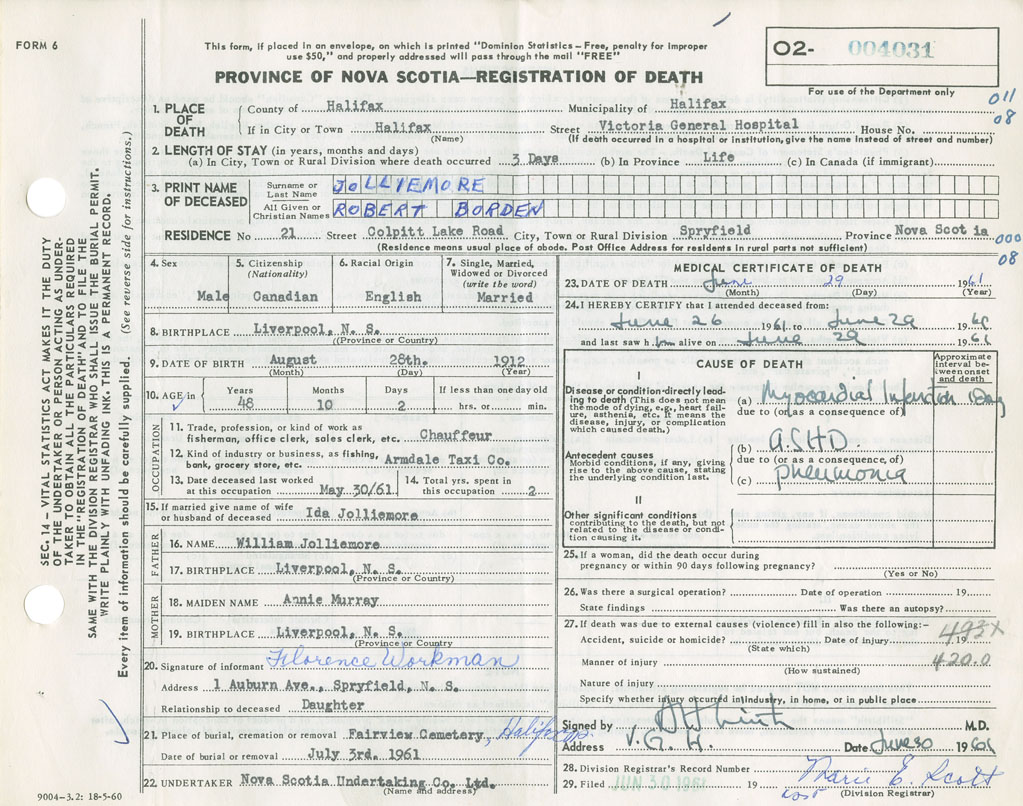 FORM 6
This form, if placed in an envelope, on which is printed "Dominion Statistics – Free, penalty for improper
use $50," and properly addressed will pass through the mail "FREE"
PROVINCE OF NOVA SCOTIA—REGISTRATION OF DEATH
02- 004031
For use of the Department only
011
08
1. PLACE OF DEATH
County of Halifax Municipality of Halifax
If in City or Town Halifax Street Victoria General Hospital House No.
(Name) (If death occurred in a hospital or institution, give the name instead of street and number)
2. LENGTH OF STAY (in years, months and days)
(a) In City, Town or Rural Division where death occurred 3 Days (b) In Province Life (c) In Canada (if immigrant)
3. PRINT NAME OF DECEASED
Surname or Last Name JOLLIEMORE
All Given or Christian Names ROBERT BORDEN
RESIDENCE No 21 Street Colpitt Lake Road City, Town or Rural Division Spryfield Province Nova Scotia
(Residence means usual place of abode. Post Office Address for residents in rural parts not sufficient)
000
08
4. Sex
Male
5. Citizenship
(Nationality)
Canadian
6. Racial Origin
English
7. Single, Married,
Widowed or Divorced
(write the word)
Married
8. BIRTHPLACE Liverpool, N. S.
(Province or Country)
9. DATE OF BIRTH August 28th. 1912
(Month) (Day) (Year)
10. AGE in Years 48 Months 10 Days 2 If less than one day old hrs. or min.
OCCUPATION
11. Trade, profession, or kind of work as
fisherman, office clerk, sales clerk, etc. Chauffeur
12. Kind of industry or business, as fishing,
bank, grocery store, etc. Armdale Taxi Co.
13. Date deceased last worked
at this occupation May 30/61
14. Total yrs. spent in
this occupation 2
15. If married give name of wife
or husband of deceased Ida Jolliemore
FATHER
16. NAME William Jolliemore
17. BIRTHPLACE Liverpool, N. S.
(Province or Country)
MOTHER
18. MAIDEN NAME Annie Murray
19. BIRTHPLACE Liverpool, N. S.
(Province or Country)
20. Signature of informant Florence Workman
Address 1 Auburn Ave., Spryfield, N. S.
Relationship to deceased Daughter
21. Place of burial, cremation or removal Fairview Cemetery, Halifax
Date of burial or removal July 3rd. 1961
22. UNDERTAKER Nova Scotia Undertaking Co. Ltd.
(Name and address)
9004-3.2: 18-5-60
MEDICAL CERTIFICATE OF DEATH
23. DATE OF DEATH June 29 1961
(Month) (Day) (Year)
24. I HEREBY CERTIFY that I attended deceased from:
June 26 1961 to June 29 1961
and last saw him alive on June 29 1961
CAUSE OF DEATH
Approximate
interval be-
tween onset
and death
I
Disease or condition directly lead-
ing to death (This does not mean
the mode of dying, e.g., heart fail-
ure, asthenia, etc. It means the
disease, injury, or complication
which caused death.)
(a) Myocardial Infarction 1 Day
due to (or as a consequence of)
(b) A.S.H.D
Antecedent causes
Morbid conditions, if any, giving
rise to the above cause, stating
the underlying condition last.
due to (or as a consequence of)
(c) pneumonia
II
Other significant conditions
contributing to the death, but not
related to the disease or condi-
tion causing it.
25. If a woman, did the death occur during
pregnancy or within 90 days following pregnancy?
(Yes or No)
26. Was there a surgical operation? Date of operation 19
State findings Was there an autopsy?
27. If death was due to external causes (violence) fill in also the following:-
493X
Accident, suicide or homicide? Date of injury 19
(State which)
420.0
Manner of injury
(How sustained)
Nature of injury
Specify whether injury occurred in industry, in home, or in public place
Signed by M.D.
Address V. G. H. Date June 30 1961
28. Division Registrar's Record Number
29. Filed JUN 30 1961 19 Marie E. Scott
(Division Registrar)
SEC. 14 – VITAL STATISTICS ACT MAKES IT THE DUTY
OF THE UNDERTAKER OR PERSON ACTING AS UNDER-
TAKER TO OBTAIN ALL THE PARTICULARS REQUIRED
IN THE "REGISTRATION OF DEATH" AND TO FILE THE
SAME WITH THE DIVISION REGISTRAR WHO SHALL ISSUE THE BURIAL PERMIT.
WRITE PLAINLY WITH UNFADING INK. THIS IS A PERMANENT RECORD.
Every item of information should be carefully supplied. (See reverse side for instructions.)